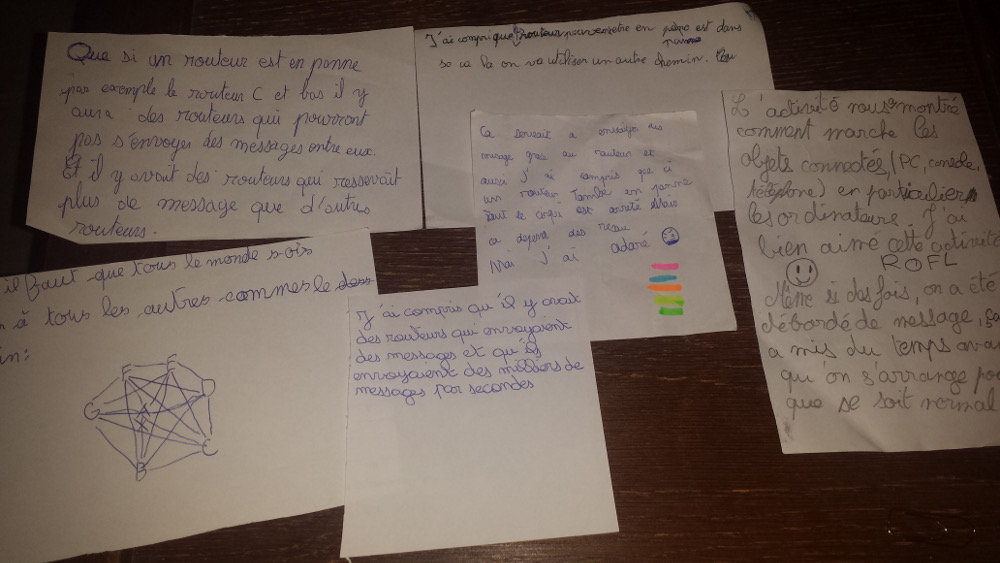 Que si un routeur est en panne
par exemple le routeur C et bas il y
aura des routeurs qui pourront
pas s'envoyer des messages entre eux.
Et il y avait des routeurs qui ressevait
plus de message que d'autres
routeurs.
J'ai compri que si routeur en est dans
se cà là on va utiliser un autre chemin.
Ca servait a envoyer des
message grace au routeur et
aussi j'ai compris que si
un routeur tombe en panne
tout le est arreté Mais
ca depend des reseau
Moi j'ai adoré
L'activité nous a montré
comment marche les
objets connectés, (PC, console,
téléphone) en particulier
les ordinateurs. J'ai
bien aimé cette activité
ROFL
Même si des fois, on a été
débordé de message, ça
a mis du temps avan
qu'on s'arrange po
que se soit normal
il faut que tous le monde sois
à tous les autres commes le dess
in:
F E
G A D
C
B
J'ai compris qu'il y avait
des routeurs qui envoyaient
des messages et qu'ils
envoyaient des milliers de
messages par secondes